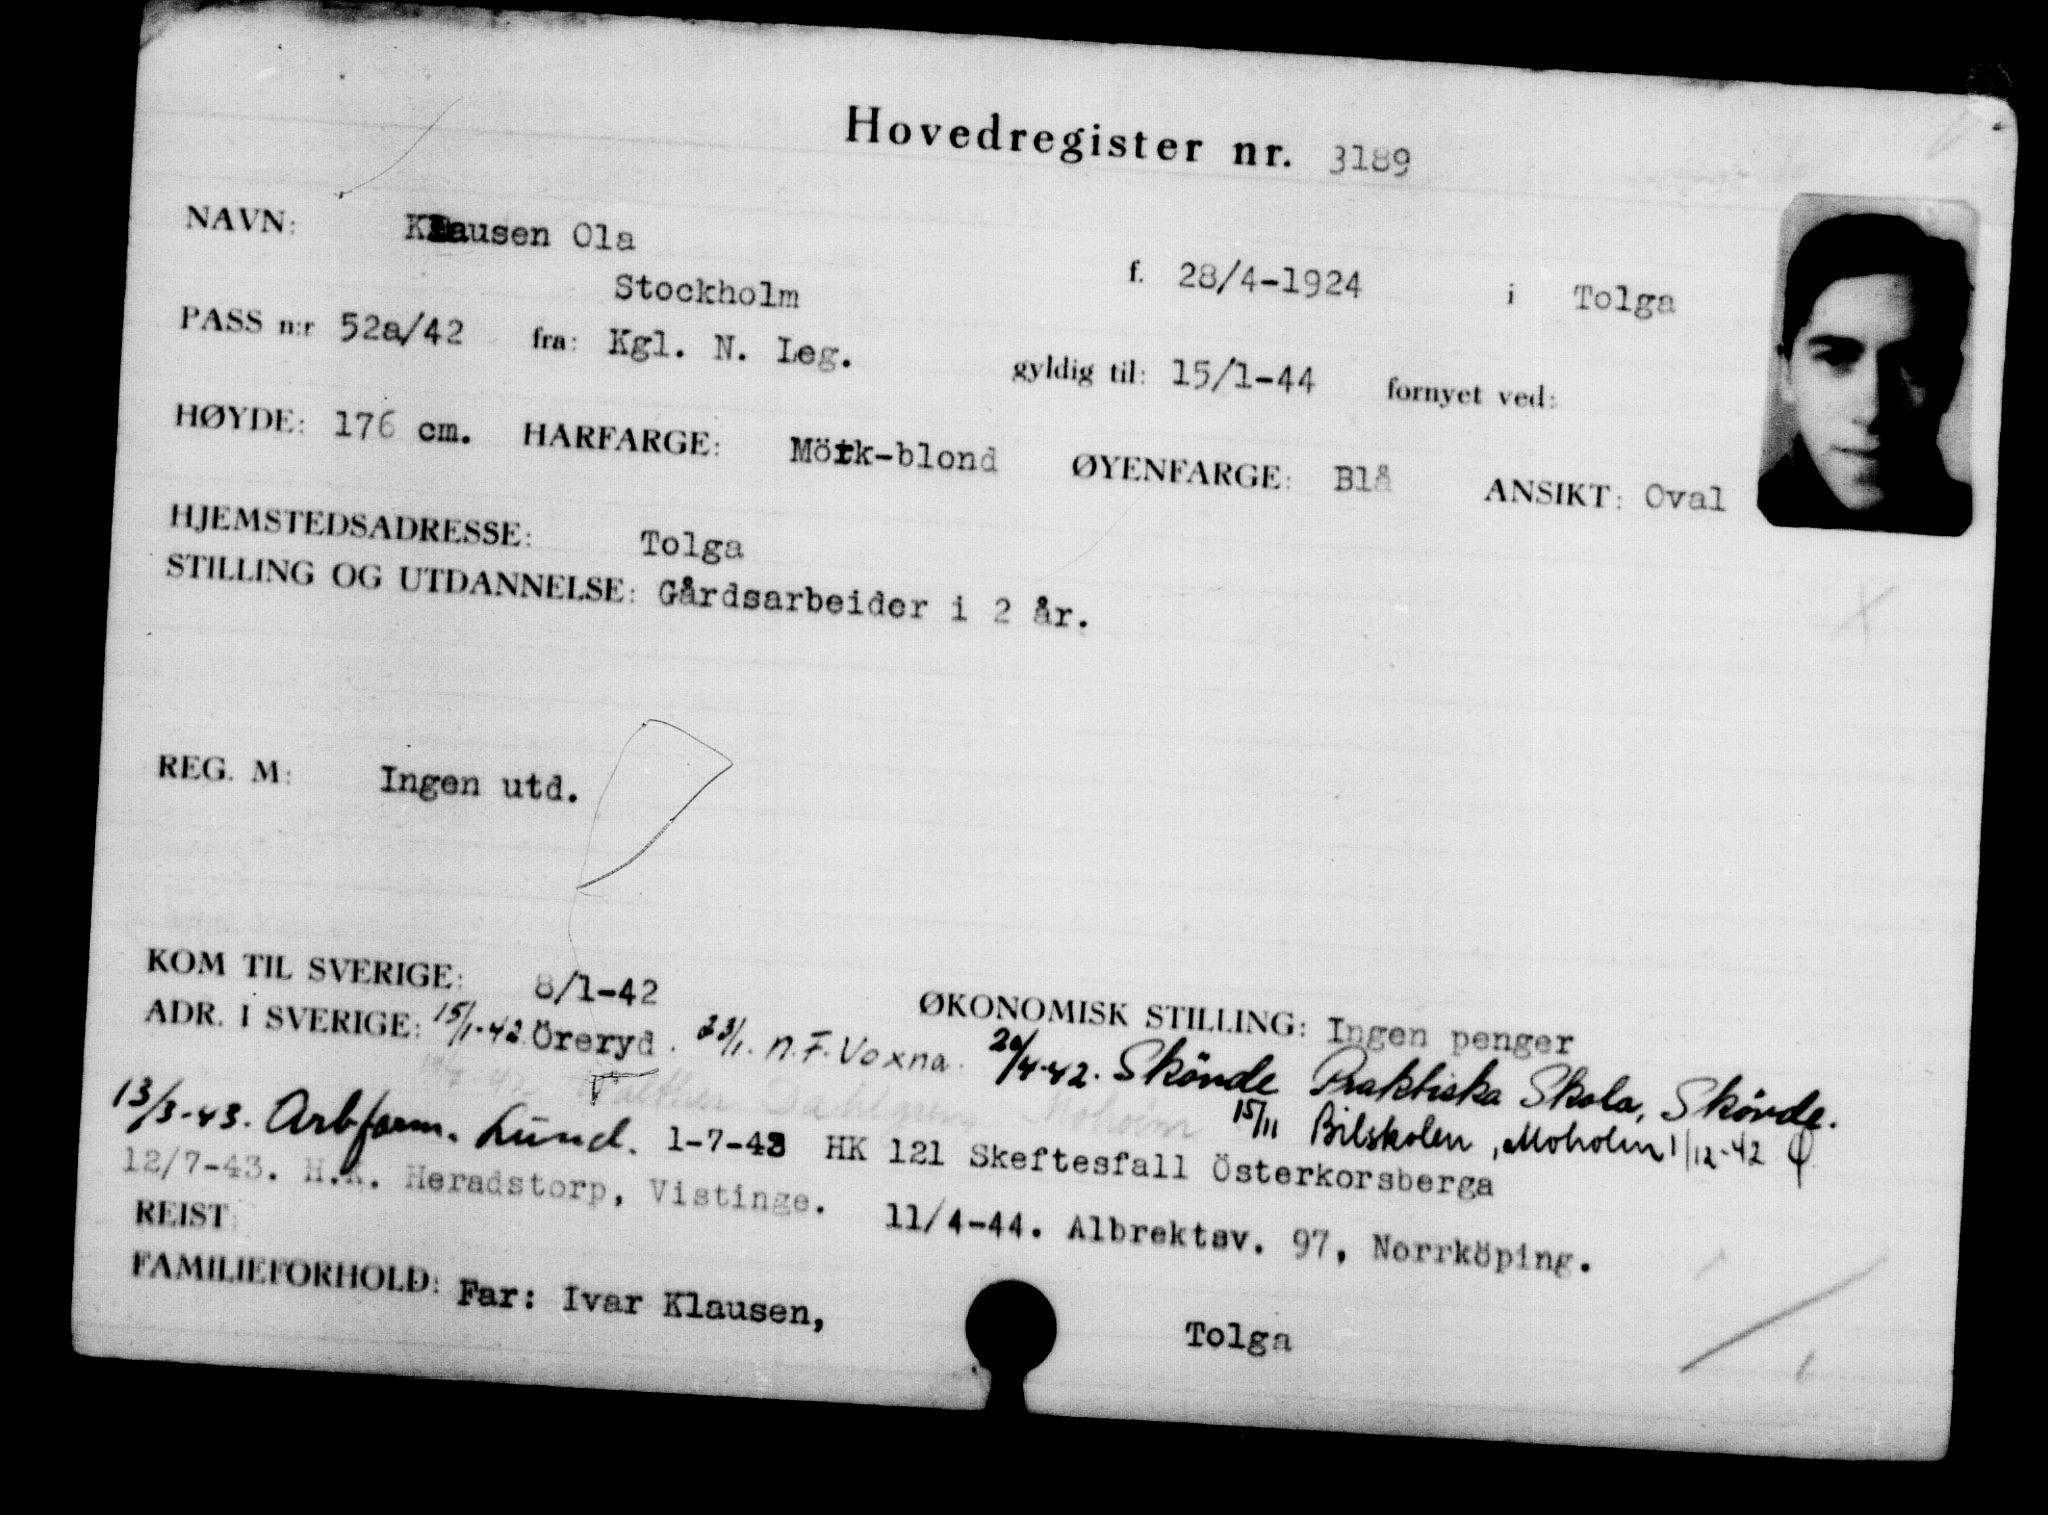 Hovedregister nr. 3189
NAVN: Klausen Ola f. 28/4-1924 i Tolga
Stockholm
PASS n:r 52a/42 fra: Kgl. N. Leg. gyldig til: 15/1-44 fornyet ved:
HØYDE: 176 cm. HARFARGE: Mörk-blond ØYENFARGE: Blå ANSIKT: Oval
HJEMSTEDSADRESSE: Tolga
STILLING OG UTDANNELSE: Gårdsarbeider i 2 år.
REG. M: Ingen utd.
KOM TIL SVERIGE: 8/1-42 ØKONOMISK STILLING: Ingen penger
ADR. I SVERIGE: 15/1-42 Öreryd. 23/1. n.F. Voxna. 20/4-42. Skönde Praktiska Skola, Skönde.
Walther Dahlgren, Moholm 15/11 Bilskolen, Moholm 1/12-42
13/3-43. Arbform. Lund. 1-7-43 HK 121 Skeftesfall Österkorsberga
12/7-43. H.K. Heradstorp, Vistinge. 11/4-44. Albrektsv. 97, Norrköping.
REIST:
FAMILIEFORHOLD: Far: Ivar Klausen, Tolga